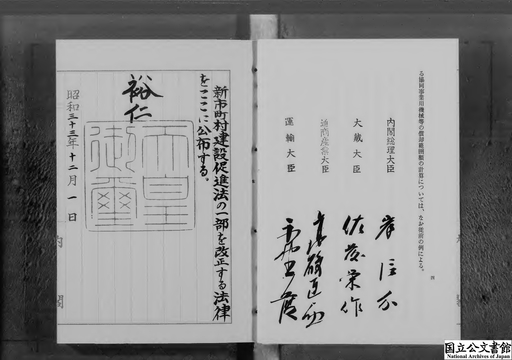 る協同事業用機械等の償却範囲額の計算については、なお従前の例による。
内閣総理大臣 岸信介
大蔵大臣 佐藤栄作
通商産業大臣
運輸大臣
新市町村建設促進法の一部を改正する法律
をここに公布する。
裕仁
天皇御璽
昭和三十三年十二月一日
内閣
国立公文書館
National Archives of Japan